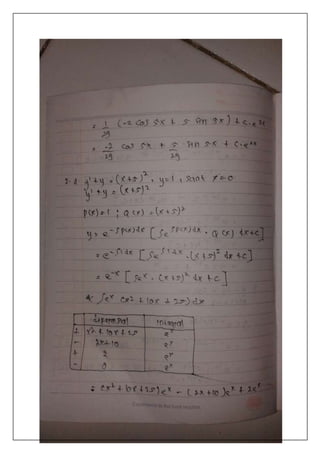 = 1/29 (-2 cos 5x + 5 sin 5x) + c·e^2x
= -2/29 cos 5x + 5/29 sin 5x + c·e^2x
y' + y = (x+5)², y=1, saat x=0
y' + y = (x+5)²
P(x)=1 ; Q(x) = (x+5)²
y = e^-∫P(x)dx [∫e^∫P(x)dx · Q(x) dx+c]
= e^-∫1dx [∫e^∫1dx · (x+5)² dx+c]
= e^-x [∫e^x · (x+5)² dx+c]
∫e^x (x² + 10x + 25) dx
Diferensial Integral
+ x² + 10x + 25 e^x
- 2x+10 e^x
+ 2 e^x
- 0 e^x
= (x² + 10x + 25) e^x - (2x+10) e^x + 2e^x